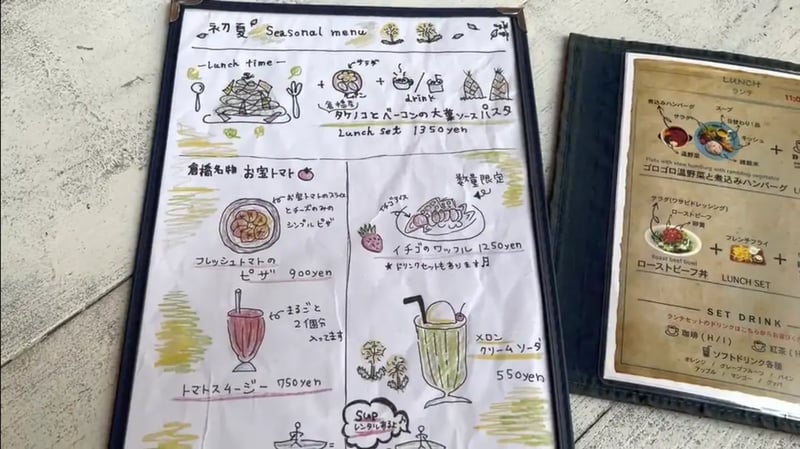 初夏 Seasonal menu
Lunch time
サラダ
drink
倉橋産
タケノコとベーコンの大葉ソースパスタ
Lunch set 1350yen
倉橋名物 お宝トマト
お宝トマトのスライス
とチーズのみの
シンプルピザ
フレッシュトマトの
ピザ 900yen
まるごと
2個分
入ってます
トマトスムージー 750yen
数量限定
イチゴアイス
イチゴのワッフル 1250yen
★ドリンクセットもあります♬
メロン
クリームソーダ
550yen
SUP
レンタルあるよ
LUNCH
ランチ
煮込みハンバーグ
スープ
サラダ
日替わり1品
キッシュ
温野菜
雑穀米
ゴロゴロ温野菜と煮込みハンバーグ
サラダ(ワサビドレッシング)
ローストビーフ
卵黄
フレンチフライ
Roast beef bowl
ローストビーフ丼 LUNCH SET
SET DRINK
ランチセットのドリンクはこちらからお選びく
珈琲(H/I)
紅茶(H
ソフトドリンク各種
オレンジ / グレープフルーツ / パイン
アップル / マンゴー / グァバ